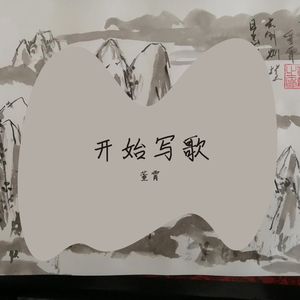 开始写歌
董霄